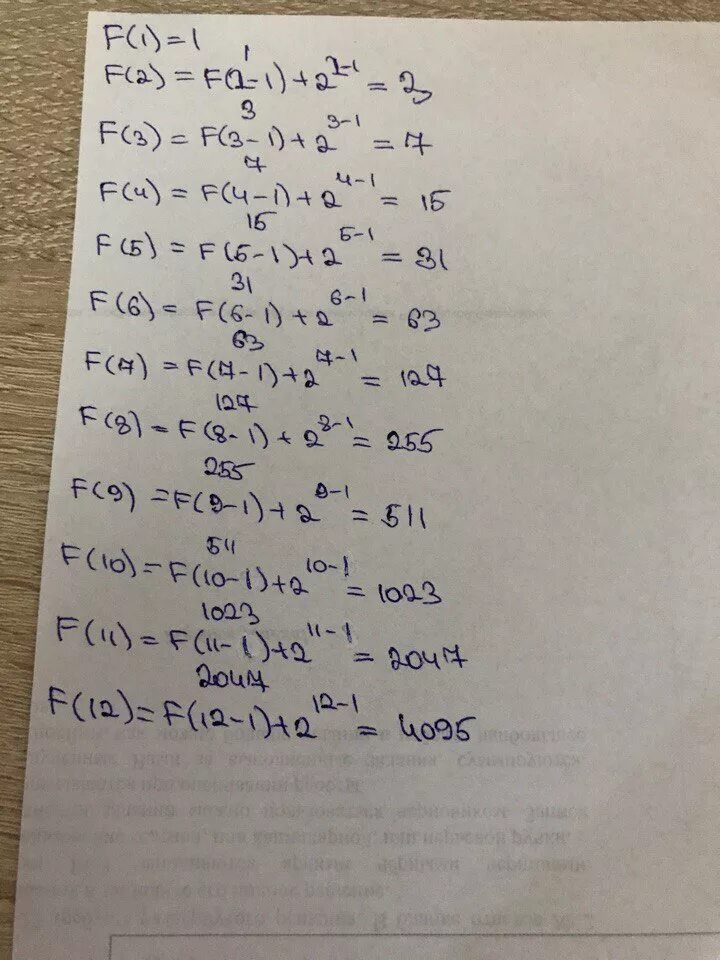 F(1)=1
1
F(2) = F(2-1)+2^2-1 = 3
3
F(3) = F(3-1)+2^3-1 = 7
7
F(4) = F(4-1)+2^4-1 = 15
15
F(5) = F(5-1)+2^5-1 = 31
31
F(6) = F(6-1)+2^6-1 = 63
63
F(7) = F(7-1)+2^7-1 = 127
127
F(8) = F(8-1)+2^8-1 = 255
255
F(9) = F(9-1)+2^9-1 = 511
511
F(10) = F(10-1)+2^10-1 = 1023
1023
F(11) = F(11-1)+2^11-1 = 2047
2047
F(12) = F(12-1)+2^12-1 = 4095